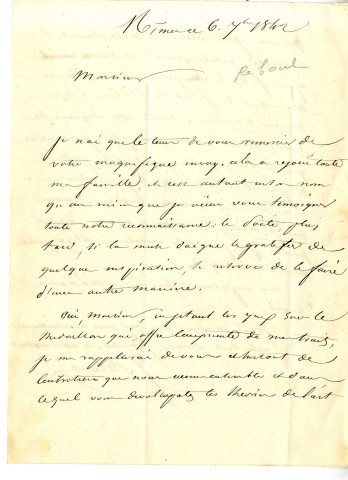 Nimes ce 6. 7bre 1842
Reboul
Monsieur
je n'ai que le tems de vous remercier de
votre magnifique envoy. cela a rejoui toute
ma famille, et c'est autant en son nom
qu'au mien que je viens vous témoigner
toute notre reconnaissance: le Poète plus
tard, si la muse daigne le gratifier de
quelque inspiration, se réserve de le faire
d'une autre manière.
Oui, Monsieur, en jetant les yeux sur le
Médaillon qui offre l'empreinte de mes traits,
je me rappellerai de vous et surtout de
l'entretien que nous eumes ensemble et dans
lequel vous developpates les theories de l'art